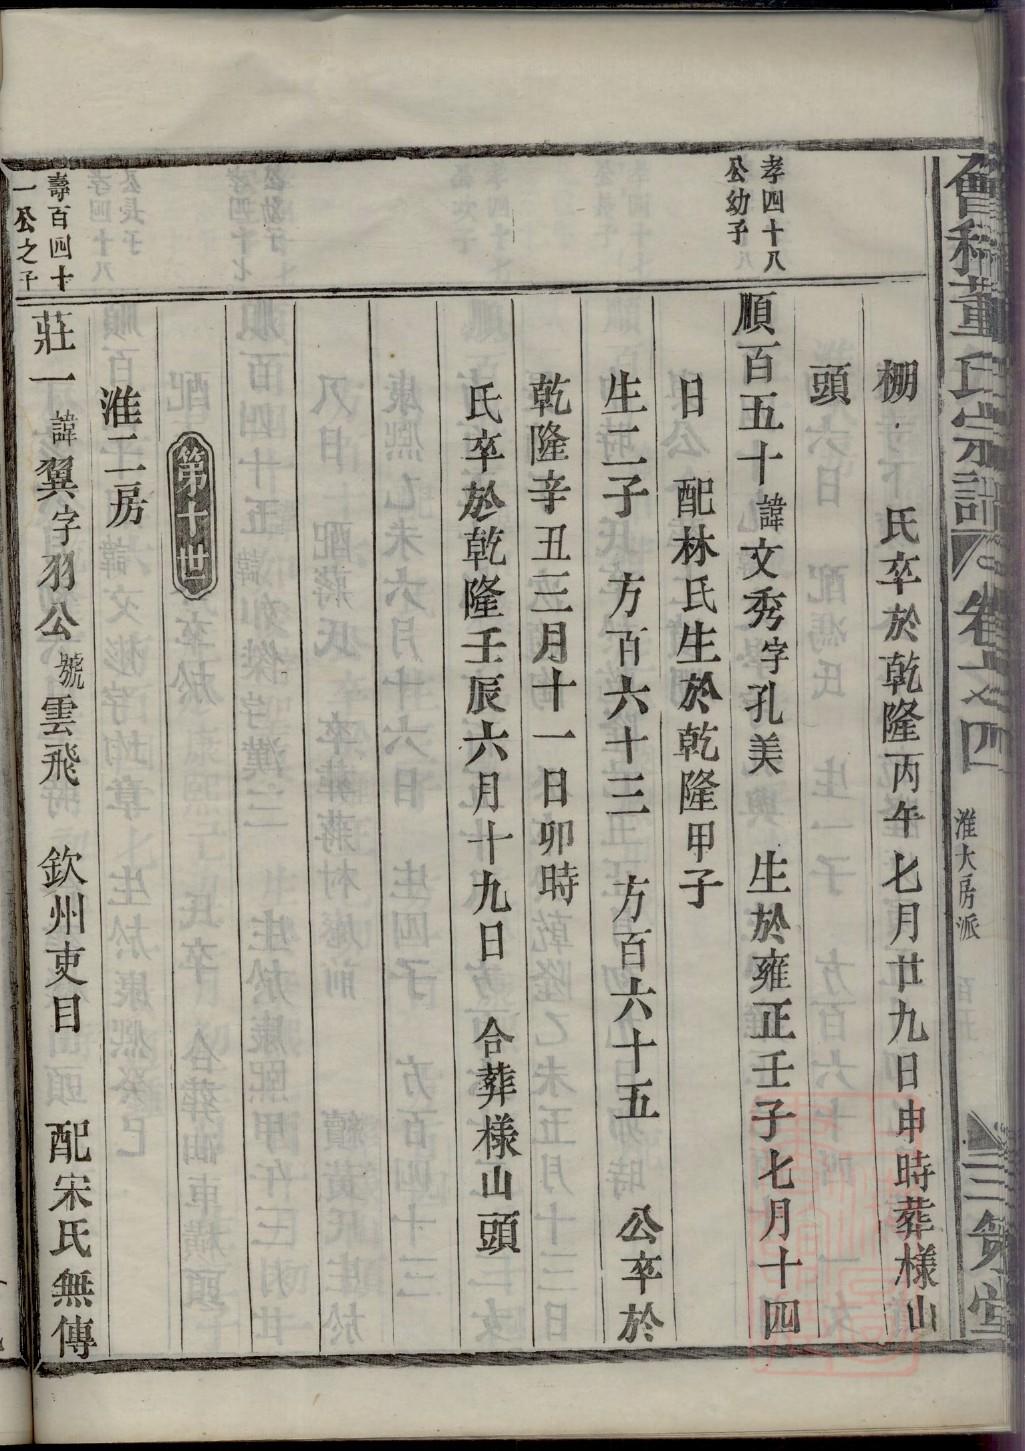 會稽董氏宗譜 卷之四 淮大房派 三策堂
棚 氏卒於乾隆丙午七月廿九日申時葬樣山
頭
孝四十八
公幼子
順百五十諱文秀字孔美 生於雍正壬子七月十四
日 配林氏生於乾隆甲子
生二子 方百六十三 方百六十五 公卒於
乾隆辛丑三月十一日卯時
氏卒於乾隆壬辰六月十九日 合葬樣山頭
第十世
淮二房
壽百四十
一公之子
莊一諱翼字羽公號雲飛 欽州吏目 配宋氏無傳